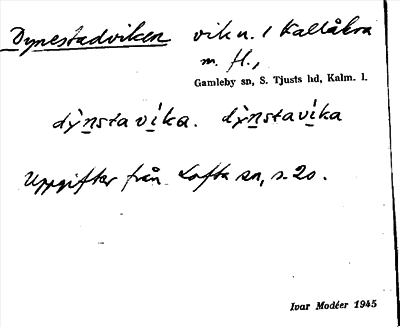 Dynestadviken vik n. / Kallåkra
m. fl.,
Gamleby sn, S. Tjusts hd, Kalm. l.
dỳnstavíka. dỳnstavíka
Uppgifter från Lofta sn, s. 20.
Ivar Modéer 1945